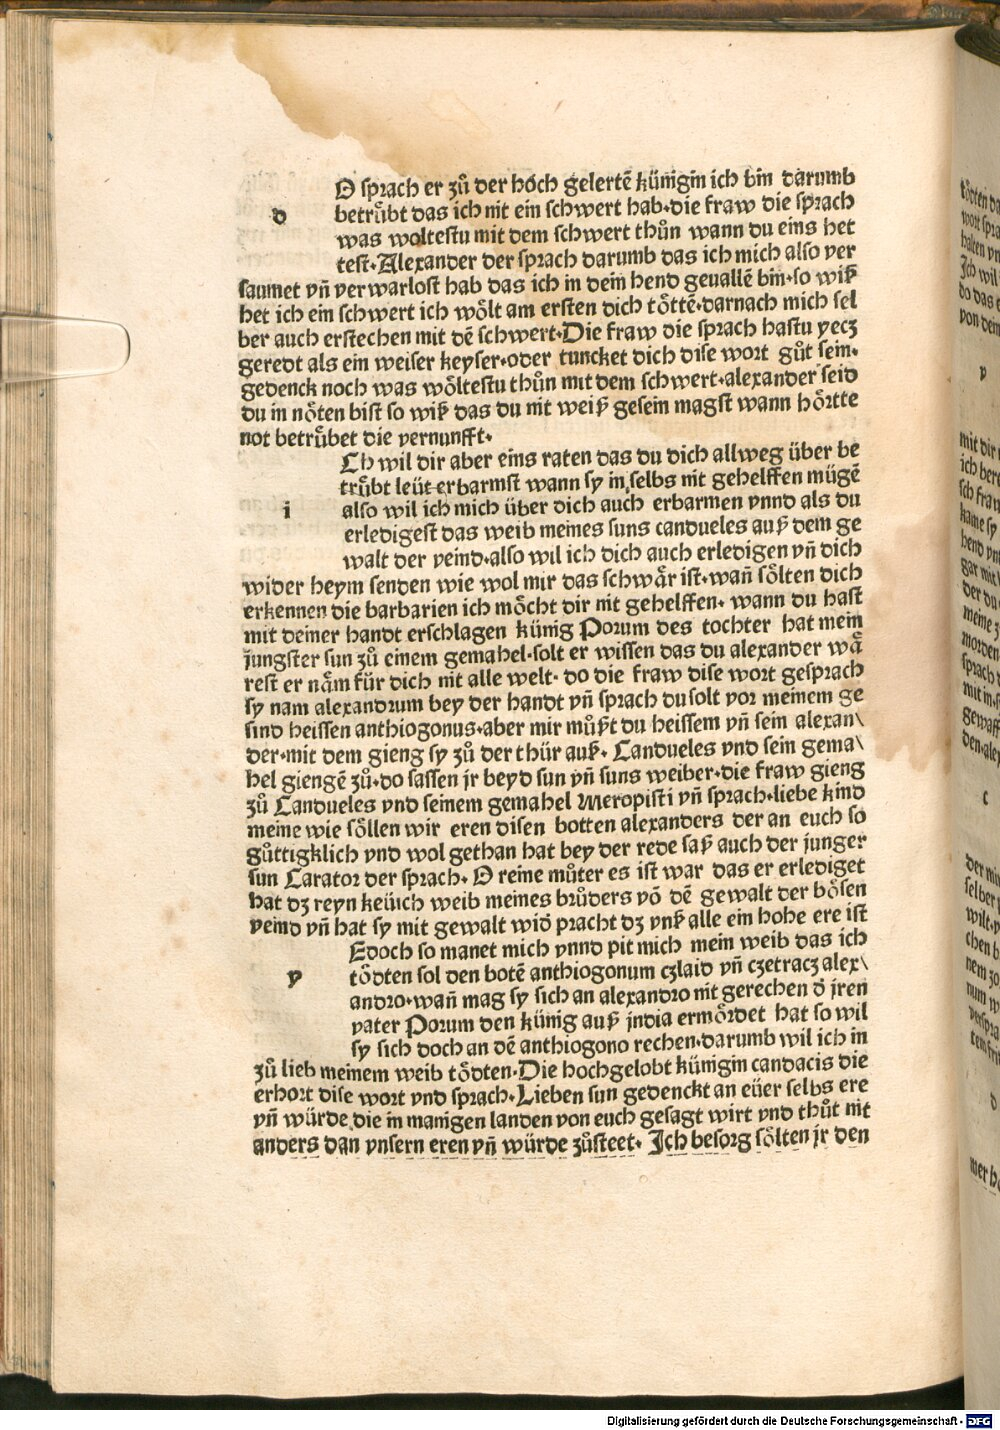 O sprach er zů der hoch gelertē künigin ich bin darumb
d
betrůbt das ich nit ein schwert hab·die fraw die sprach
was woltestu mit dem schwert thůn wann du eins het
test·Alexander der sprach darumb das ich mich also ver
saumet vñ verwarlost hab das ich in dein hend geuallē bin·so wiß
het ich ein schwert ich wölt am ersten dich töttē·darnach mich sel
ber auch erstechen mit dē schwert·Die fraw die sprach hastu yecz
geredt als ein weiser keyser·oder tuncket dich dise wort gůt sein·
gedenck noch was wöltestu thůn mit dem schwert·alexander seid
du in nöten bist so wiß das du nit weiß gesein magst wann hörtte
not betrůbet die vernunfft·
Ch wil dir aber eins raten das du dich allweg über be
trůbt leüt erbarmst wann sy in selbs nit gehelffen mügē
i
also wil ich mich über dich auch erbarmen vnnd als du
erledigest das weib meines suns candueles auß dem ge
walt der veind·also wil ich dich auch erledigen vñ dich
wider heym senden wie wol mir das schwär ist·wañ sölten dich
erkennen die barbarien ich möcht dir nit gehelffen· wann du hast
mit deiner handt erschlagen künig Porum des tochter hat mein
jungster sun zů einem gemahel·solt er wissen das du alexander wä
rest er näm für dich nit alle welt· do die fraw dise wort gesprach
sy nam alexandrum bey der handt vñ sprach du solt vor meinem ge
sind heissen anthiogonus·aber mir můßt du heissem vñ sein alexan\
der·mit dem gieng sy zů der thür auß· Candueles vnd sein gema\
hel giengē zů·do sassen jr beyd sun vñ suns weiber·die fraw gieng
zů Candueles vnd seinem gemahel Meropisti vñ sprach·liebe kind
meine wie söllen wir eren disen botten alexanders der an euch so
gůttigklich vnd wol gethan hat bey der rede saß auch der junger
sun Carator der sprach· O reine můter es ist war das er erlediget
hat dz reyn keüsch weib meines brůders vō dē gewalt der bösen
veind vñ hat sy mit gewalt wid̄ pracht dz vnß alle ein hohe ere ist
Edoch so manet mich vnnd pit mich mein weib das ich
y
tödten sol den botē anthiogonum czlaid vñ czetracz alex\
andro·wañ mag sy sich an alexandro nit gerechen d̄ jren
vater Porum den künig auß jndia ermördet hat so wil
sy sich doch an dē anthiogono rechen·darumb wil ich in
zů lieb meinem weib tödten·Die hochgelobt künigin candacis die
erhort dise wort vnd sprach·Lieben sun gedenckt an eüer selbs ere
vñ würde die in manigen landen von euch gesagt wirt vnd thůt nit
anders dan vnsern eren vñ würde zůsteet· Ich besorg sölten jr den
Digitalisierung gefördert durch die Deutsche Forschungsgemeinschaft - DFG